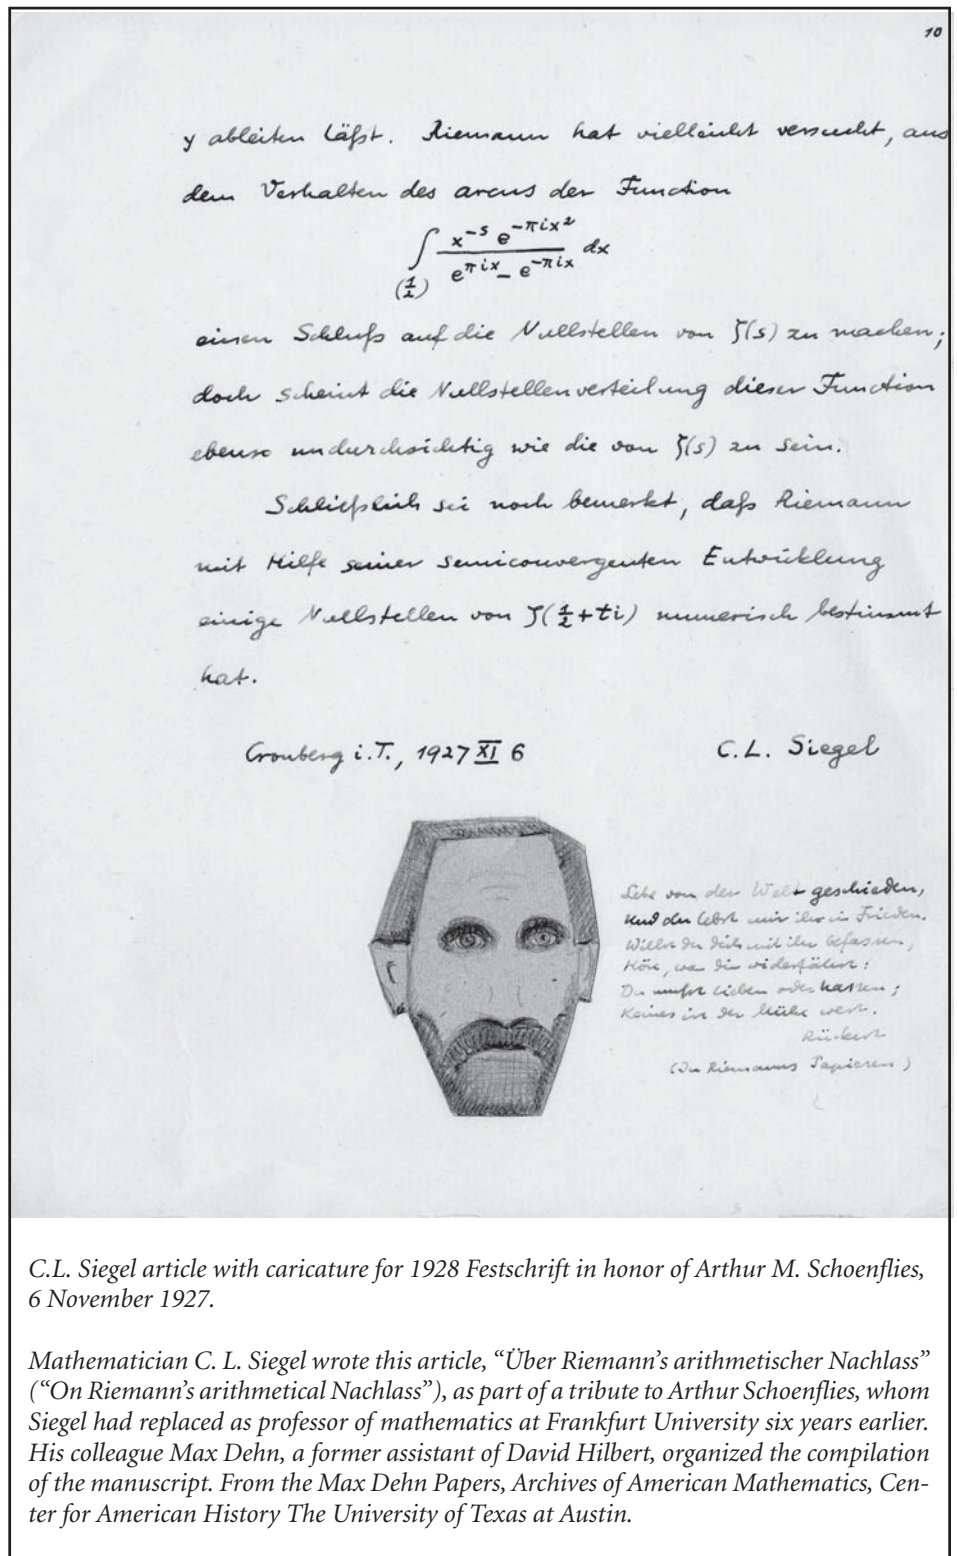 10
y ableiten läßt. Riemann hat vielleicht versucht, aus
dem Verhalten des arcus der Function
∫ x^{-s} e^{-πix²} / e^{πix} - e^{-πix} dx
(1/2)
einen Schluß auf die Nullstellen von ζ(s) zu machen;
doch scheint die Nullstellenverteilung dieser Function
ebenso undurchsichtig wie die von ζ(s) zu sein.
Schließlich sei noch bemerkt, daß Riemann
mit Hilfe seiner semiconvergenten Entwicklung
einige Nullstellen von ζ(1/2+ti) numerisch bestimmt
hat.
Cronberg i.T., 1927 XI 6
C.L. Siegel
Lebe von der Welt geschieden,
Und du lebst mit ihr in Frieden.
Willst du dich mit ihr befassen,
Höre, was dir widerfährt:
Du mußt lieben oder hassen;
Keines ist der Mühe wert.
Rückert
(In Riemanns Papieren)
C.L. Siegel article with caricature for 1928 Festschrift in honor of Arthur M. Schoenflies,
6 November 1927.
Mathematician C. L. Siegel wrote this article, “Über Riemann’s arithmetischer Nachlass”
(“On Riemann’s arithmetical Nachlass”), as part of a tribute to Arthur Schoenflies, whom
Siegel had replaced as professor of mathematics at Frankfurt University six years earlier.
His colleague Max Dehn, a former assistant of David Hilbert, organized the compilation
of the manuscript. From the Max Dehn Papers, Archives of American Mathematics, Cen-
ter for American History The University of Texas at Austin.